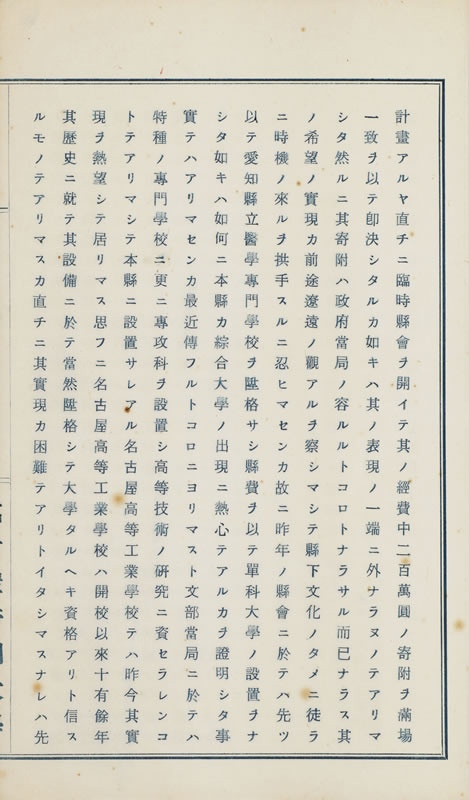 計畫アルヤ直チニ臨時縣會ヲ開イテ其ノ經費中二百萬圓ノ寄附ヲ滿場
一致ヲ以テ卽決シタルカ如キハ其ノ表現ノ一端ニ外ナラヌノテアリマ
シタ然ルニ其寄附ハ政府當局ノ容ルルトコロトナラサル而已ナラス其
ノ希望ノ實現カ前途遼遠ノ觀アルヲ察シマシテ縣下文化ノタメニ徒ラ
ニ時機ノ來ルヲ拱手スルニ忍ヒマセンカ故ニ昨年ノ縣會ニ於テハ先ツ
以テ愛知縣立醫學專門學校ヲ陞格サシ縣費ヲ以テ單科大學ノ設置ヲナ
シタ如キハ如何ニ本縣カ綜合大學ノ出現ニ熱心テアルカヲ證明シタ事
實テハアリマセンカ最近傳フルトコロニヨリマスト文部當局ニ於テハ
特種ノ專門學校ニ更ニ專攻科ヲ設置シ高等技術ノ研究ニ資セラレンコ
トテアリマシテ本縣ニ設置サレアル名古屋高等工業學校テハ昨今其實
現ヲ熱望シテ居リマス思フニ名古屋高等工業學校ハ開校以來十有餘年
其歷史ニ就テ其設備ニ於テ當然陞格シテ大學タルヘキ資格アリト信ス
ルモノテアリマスカ直チニ其實現カ困難テアリトイタシマスナレハ先